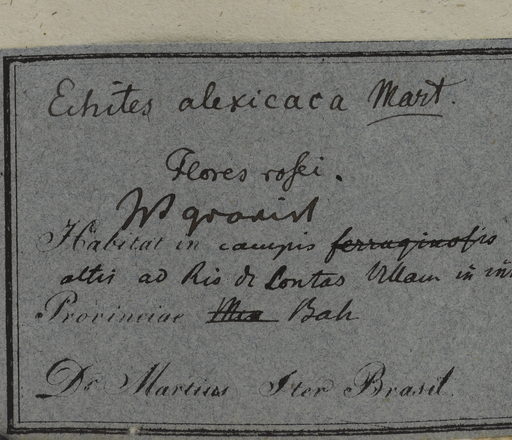 Echites alexicaca Mart.
Flores rosei.
Habitat in campis ferruginosis
altis ad Rio de Contas Villam in
Provinciae Min Bah
Dr. Martius Iter Brasil.